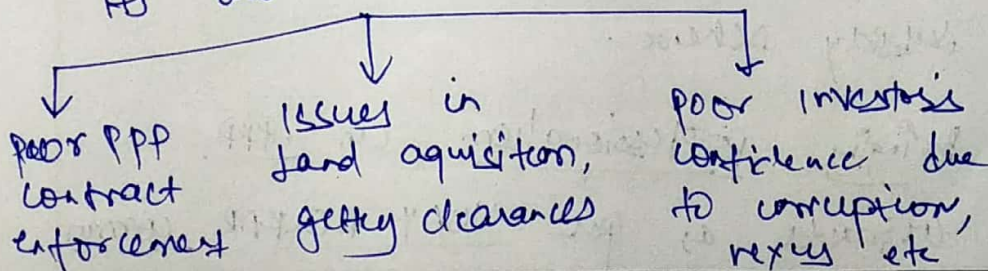 poor PPP
contract
enforcement
Issues in
land aquisition,
getting clearances
poor investors
confidence due
to corruption,
nexus etc